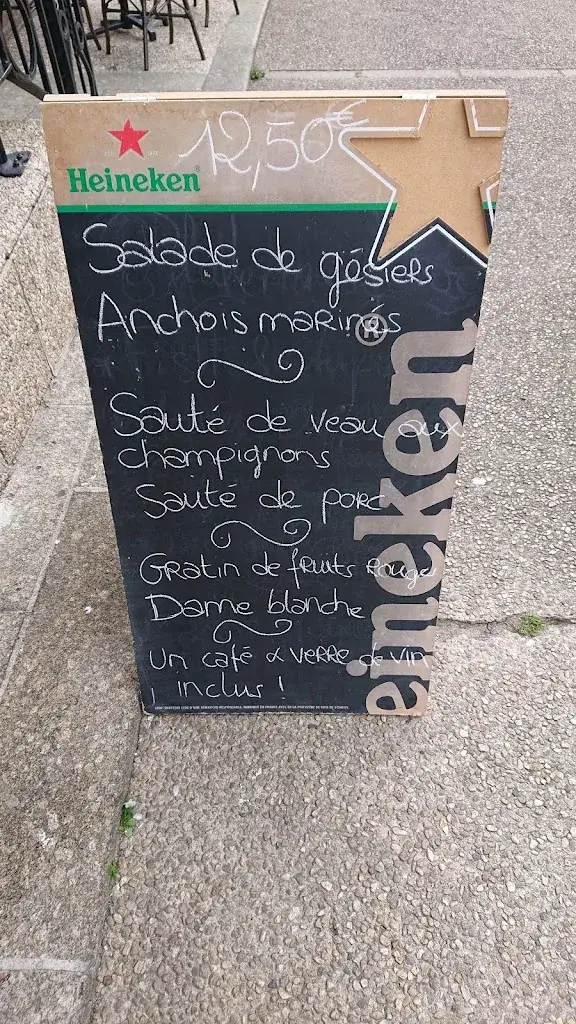 12,50€
Heineken
Salade de gésiers
Anchois marinés
Sauté de veau aux
champignons
Sauté de porc
Gratin de fruits rouge
Dame blanche
Un café & verre de vin
inclus !
eineken®